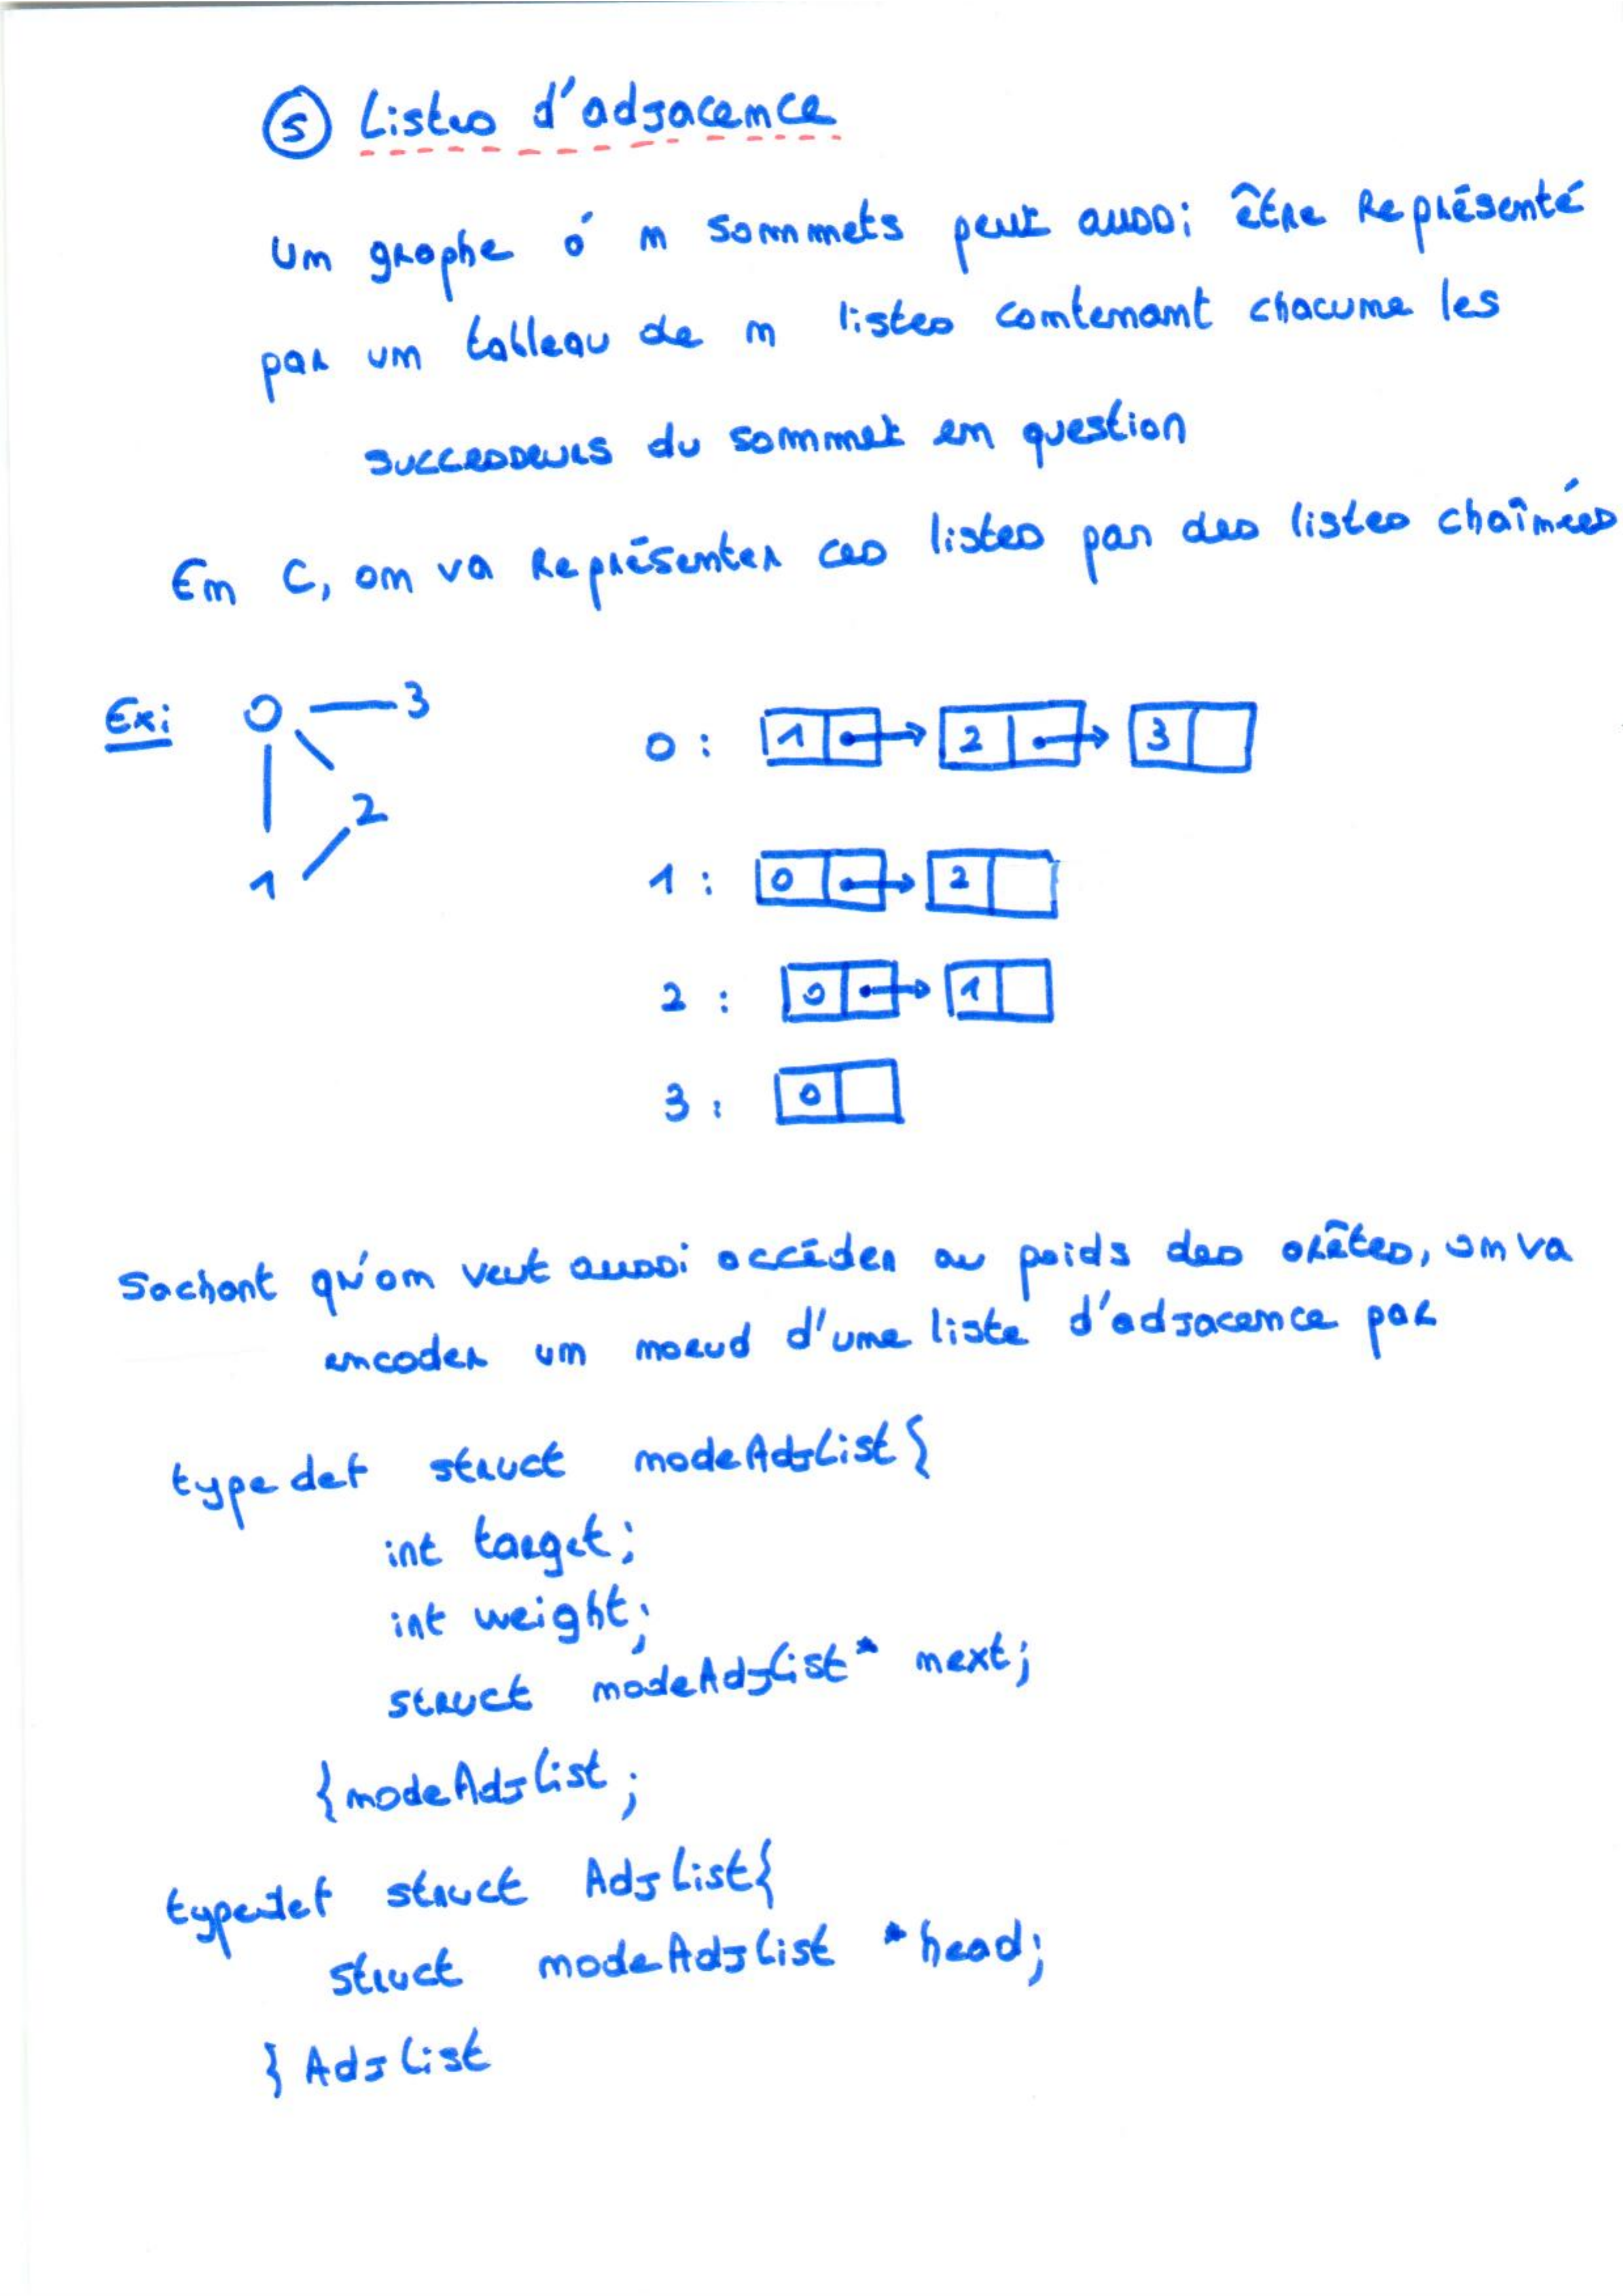 5 Listes d'adjacence
Un graphe à n sommets peut aussi être représenté
par un tableau de n listes contenant chacune les
successeurs du sommet en question
En C, on va représenter ces listes par des listes chaînées
Ex: 0 3
2
1
0 : 1 2 3
1 : 0 2
2 : 0 1
3 : 0
Sachant qu'on veut aussi accéder au poids des arêtes, on va
encoder un noeud d'une liste d'adjacence par
typedef struct nodeAdjList{
int target;
int weight;
struct nodeAdjList* next;
{nodeAdjList;
typedef struct AdjList{
struct nodeAdjList *head;
} AdjList